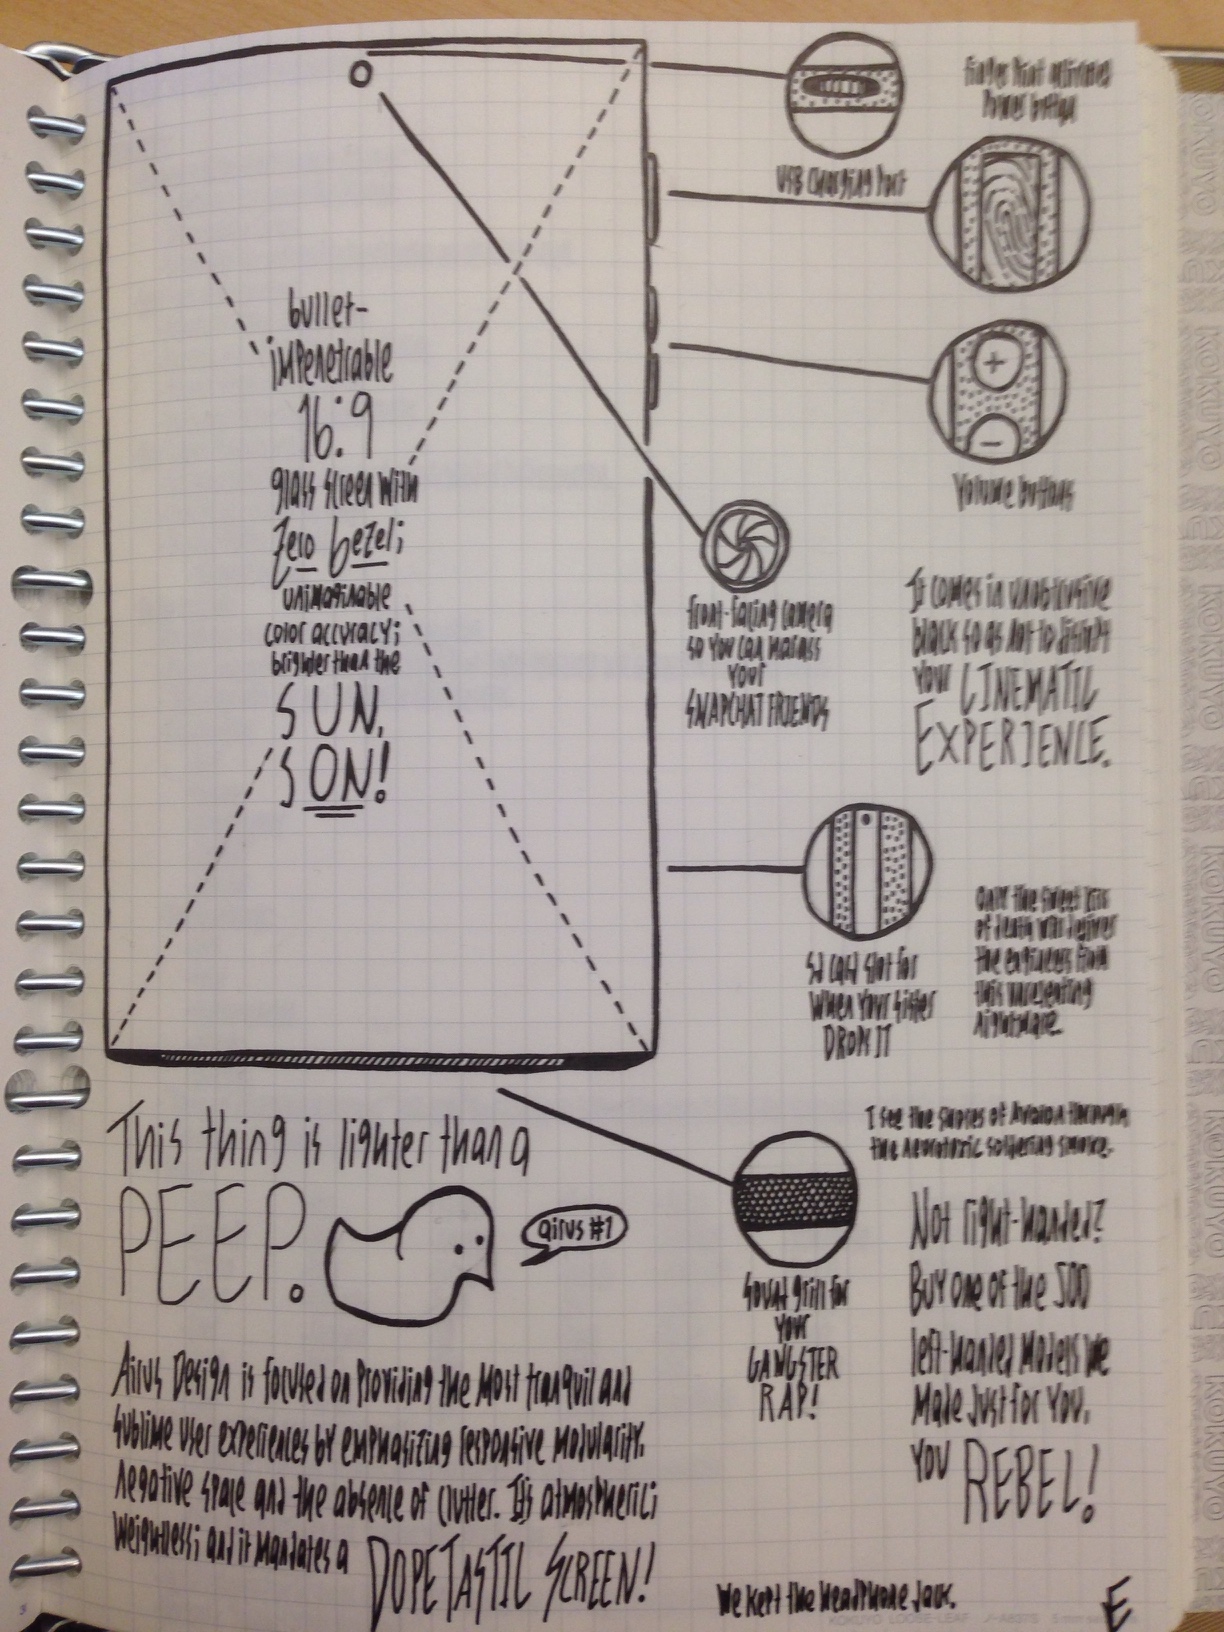 finger print activated
Power button
USB Charging Port
bullet-
impenetrable
16:9
glass screen with
Zero bezel;
unimaginable
color accuracy;
brighter than the
SUN,
SON!
+
-
Volume buttons
front-facing camera
so you can harass
your
SNAPCHAT FRIENDS
It comes in unobtrusive
black so as not to disrupt
your CINEMATIC
EXPERIENCE.
SD card slot for
When your sister
DROPS IT
Only the sweet kiss
of death will deliver
the engineers from
this unrelenting
nightmare.
This thing is lighter than a
PEEP.
Airus #1
I see the shores of Avalon through
the neurotoxic soldering smoke.
Sound grill for
your
GANGSTER
RAP!
Not right-handed?
Buy one of the 500
left-handed models we
made just for you,
you REBEL!
Airus Design is focused on providing the most tranquil and
sublime user experiences by emphasizing responsive modularity,
negative space and the absence of clutter. It's atmospheric;
weightless; and it mandates a DOPETASTIC SCREEN!
We kept the headphone jack.
E
KOKUYO LOOSE-LEAF
KOKUYO